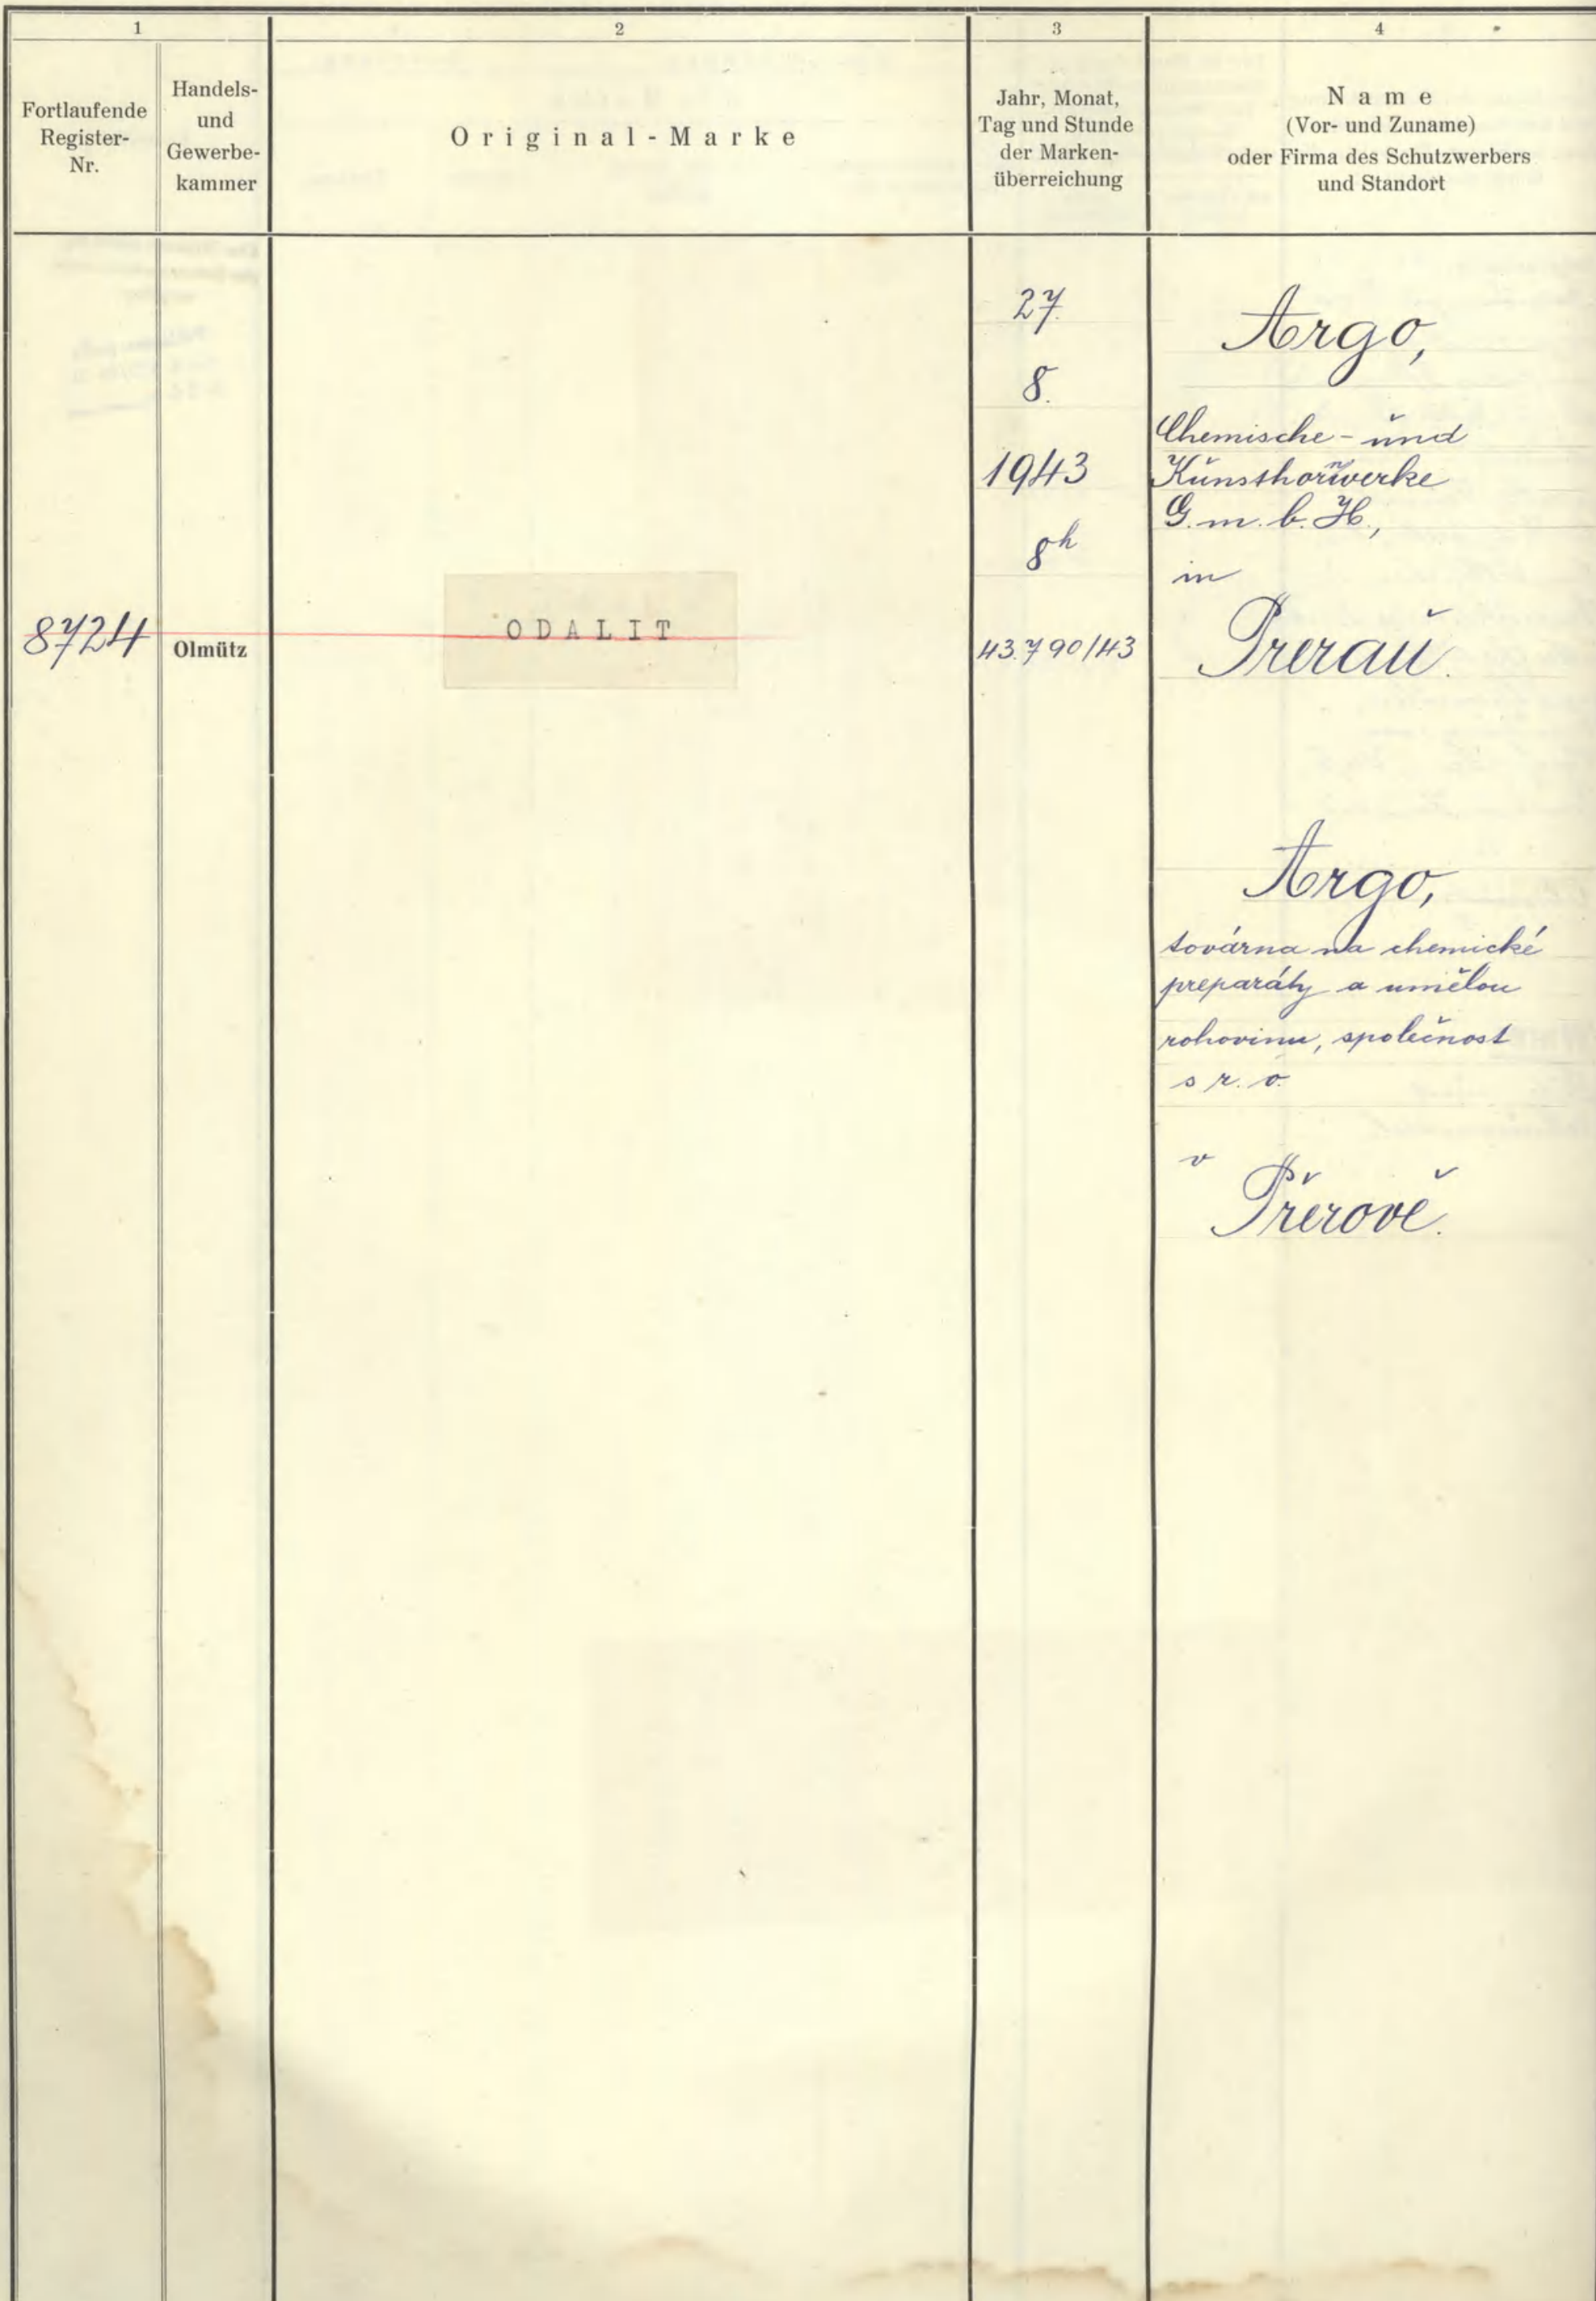 1
2
3
4
Fortlaufende
Register-
Nr.
Handels-
und
Gewerbe-
kammer
Original-Marke
Jahr, Monat,
Tag und Stunde
der Marken-
überreichung
Name
(Vor- und Zuname)
oder Firma des Schutzwerbers
und Standort
8724
Olmütz
ODALIT
27.
8.
1943
8h
43.790/43
Argo,
Chemische- und
Kunsthornwerke
G. m. b. H.,
in
Prerau.
Argo,
továrna na chemické
preparáty a umělou
rohovinu, společnost
s r. o.
v
Přerově.